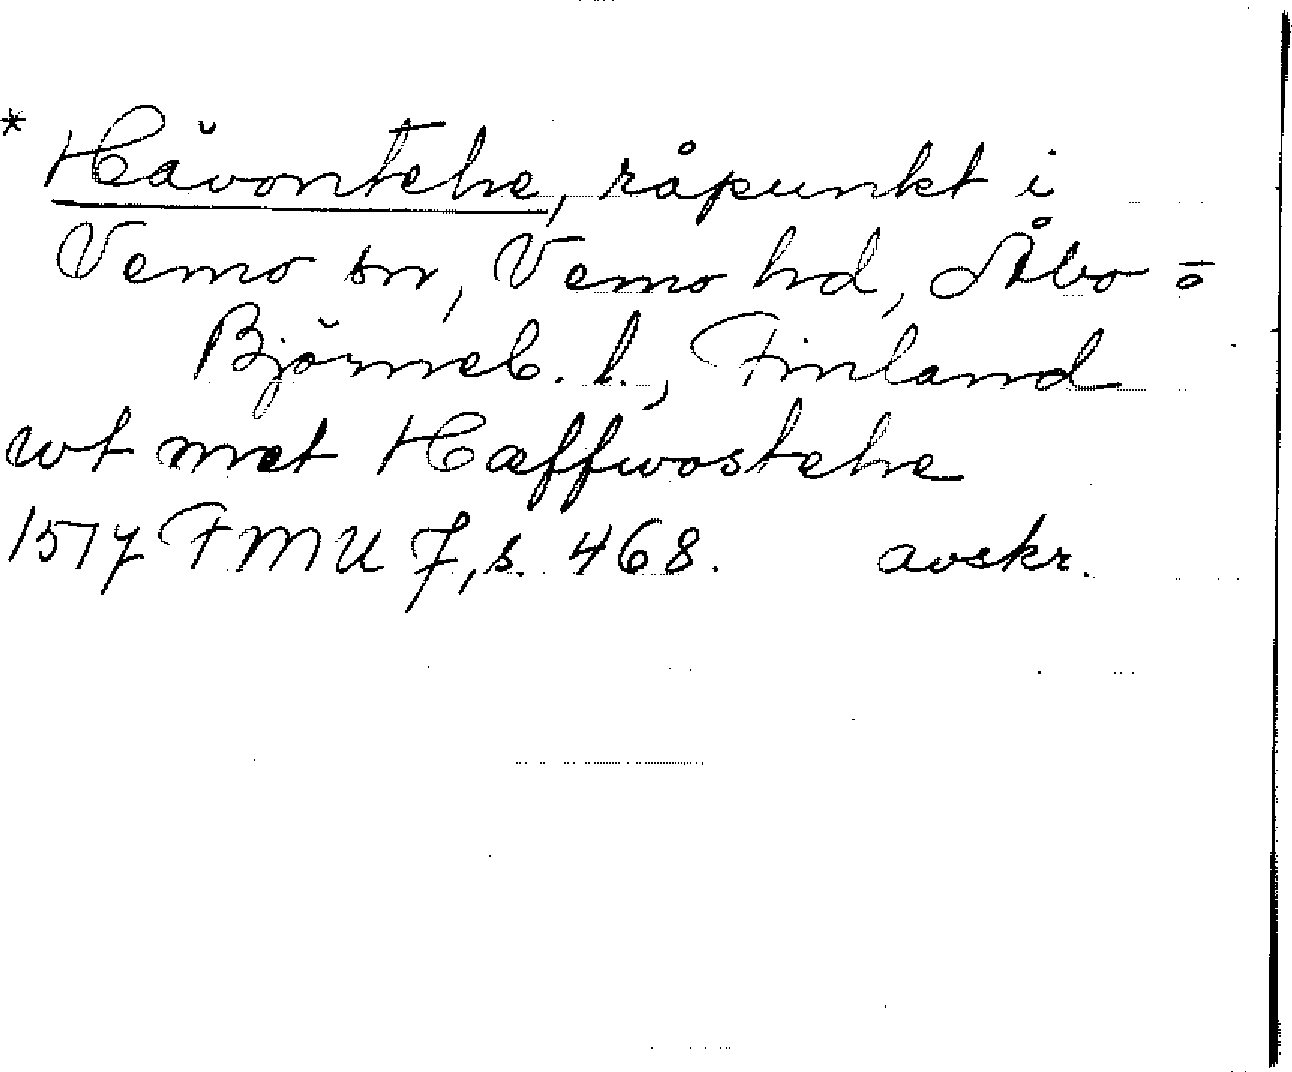 * Hävontehe, råpunkt i
Vemo sn, Vemo hd, Åbo o
Björneb. l., Finland
wt met Hæffwostehe
1517 FMU 7, s. 468. avskr.